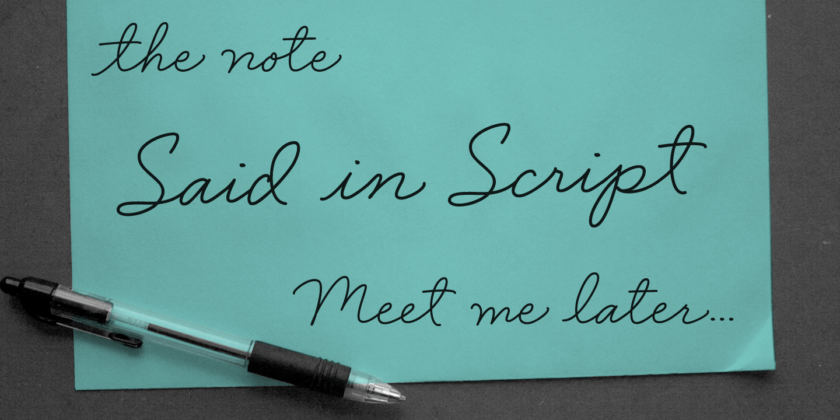 the note
Said in Script
Meet me later...